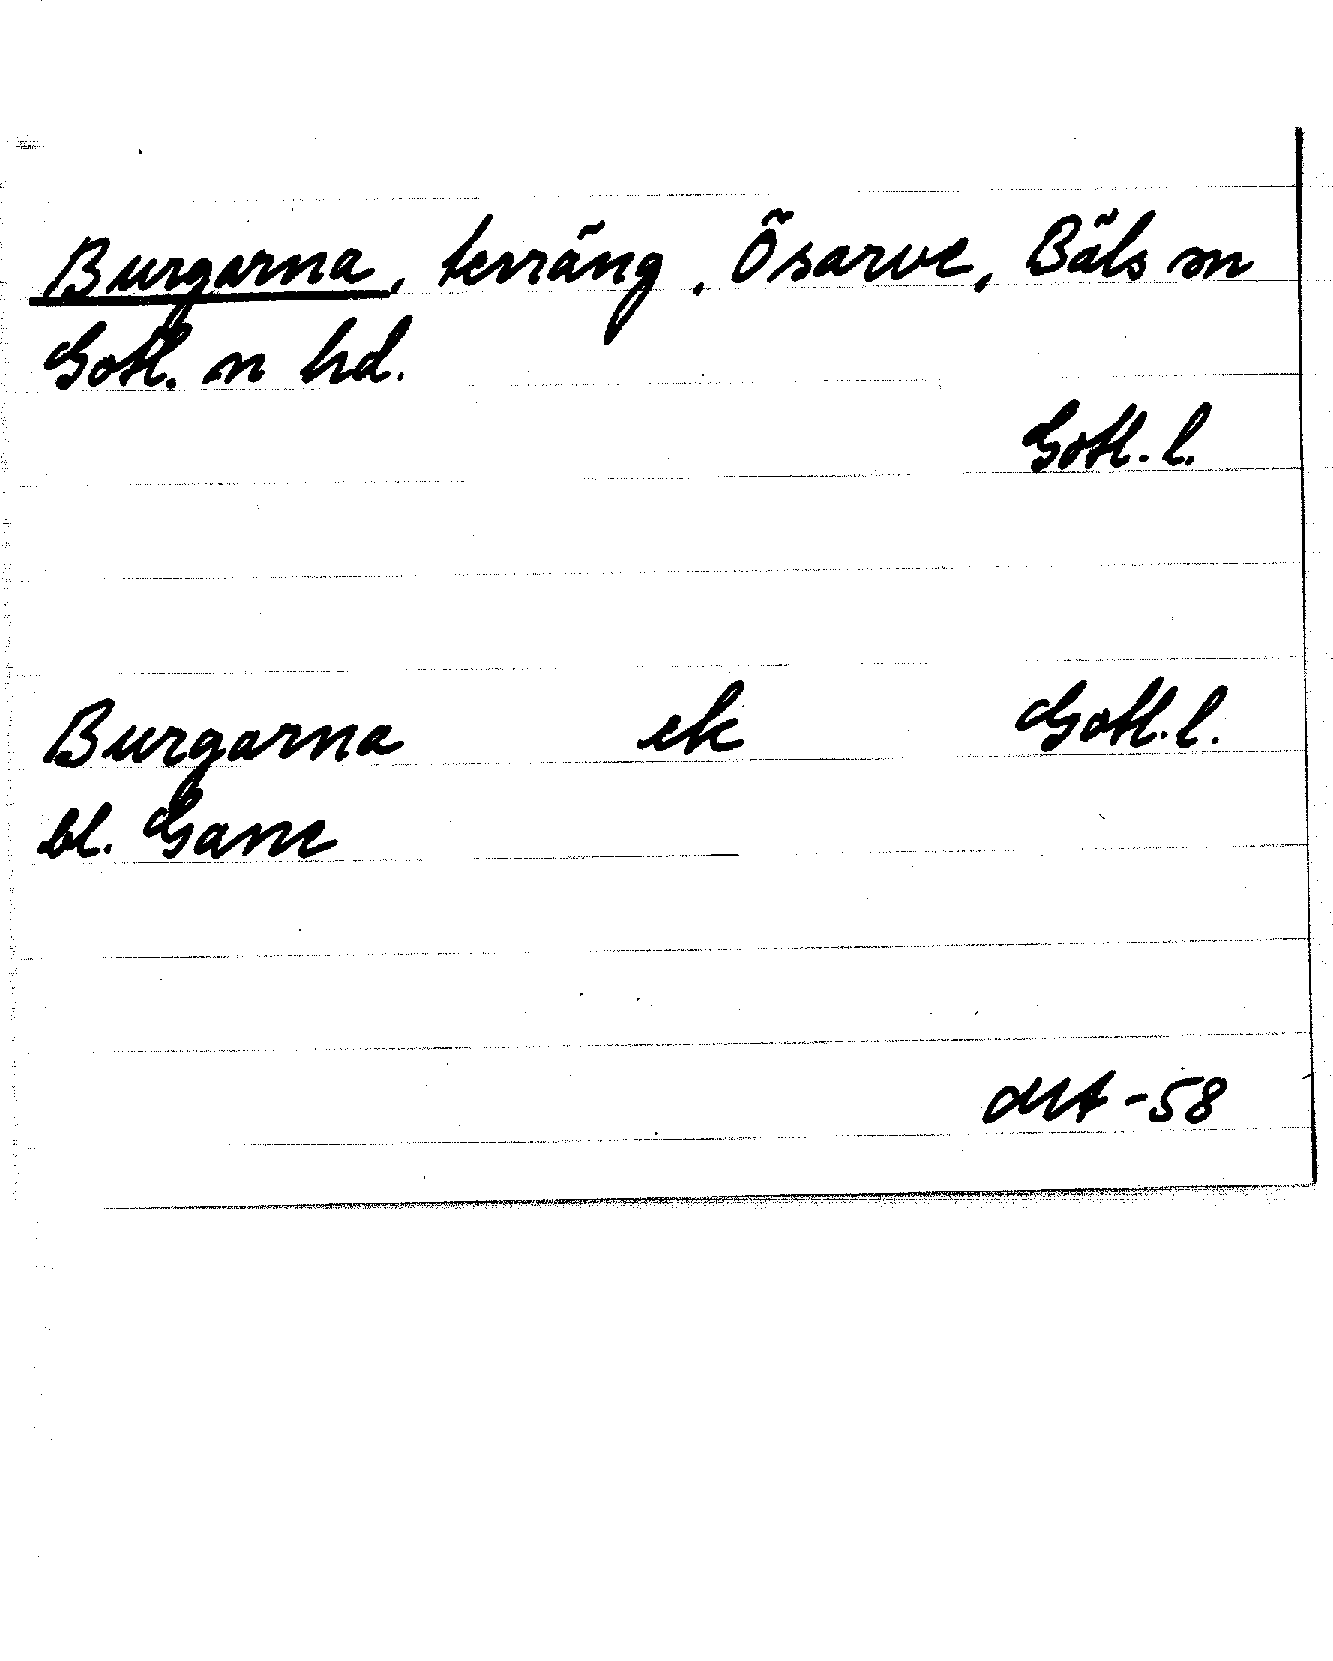 Burgarna, terräng, Ösarve, Bäls sn
Gotl. n hd.
Gotl. l.
Burgarna ek Gotl. l.
bl. Gane
-58